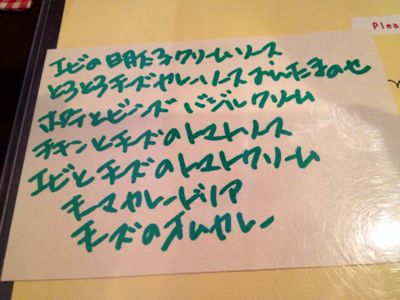 Plea
エビの明太子クリームソース
とろとろチーズカレーソースおんたまのせ
ポテトとビーンズ バジルクリーム
チキンとチーズのトマトソース
エビとチーズのトマトクリーム
キーマカレードリア
チーズのオムカレー